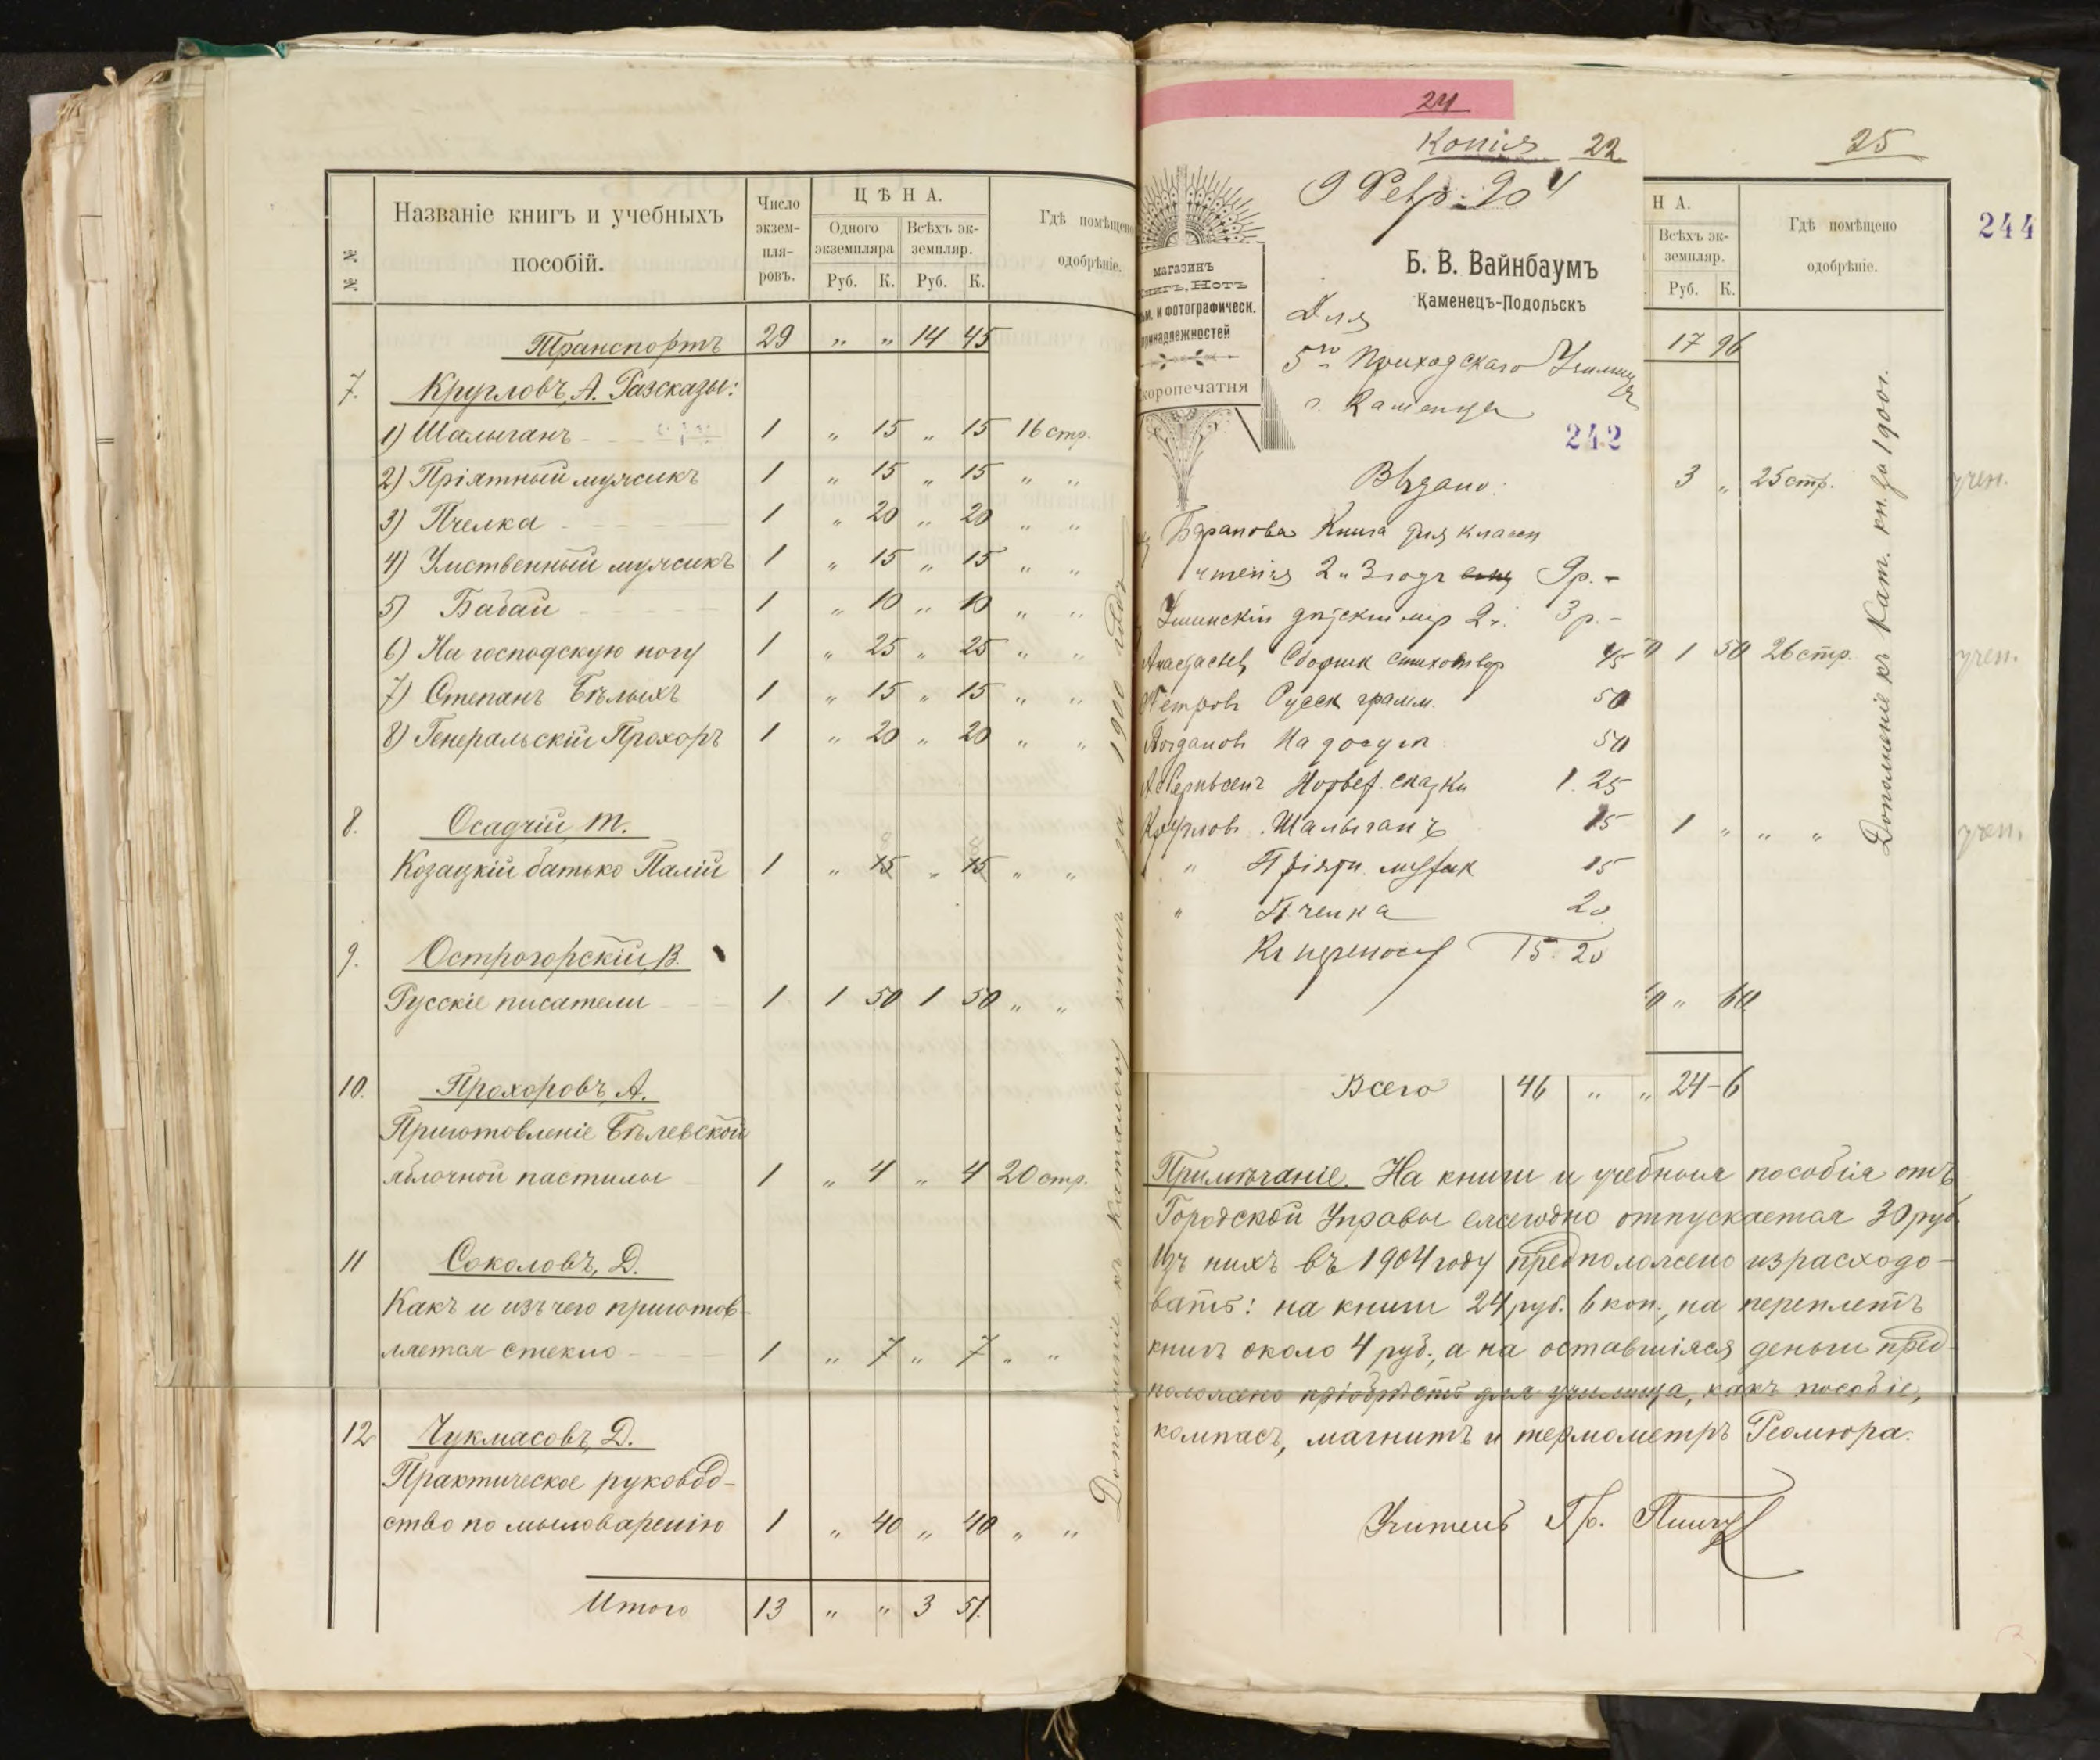 № №
Названіе книгъ и учебныхъ
пособій.
Число
экзем-
пля-
ровъ.
ЦѢНА.
Одного
экземпляра
Всѣхъ эк-
земпляр.
Руб. К. Руб. К.
Гдѣ помѣщено
одобрѣніе.
Транспортъ 29 „ „ 14 45
7. Кругловъ, А. Разсказы:
1) Шалыганъ 1 „ 15 „ 15 16 стр.
2) Пріятный мужикъ 1 „ 15 „ 15 „ „
3) Пчелка 1 „ 20 „ 20 „ „
4) Умственный мужикъ 1 „ 15 „ 15 „ „
5) Бабай 1 „ 10 „ 10 „ „
6) На господскую ногу 1 „ 25 „ 25 „ „
7) Степанъ Бѣлыхъ 1 „ 15 „ 15 „ „
8) Генеральскій Прохоръ 1 „ 20 „ 20 „ „
8. Осадчій, Т.
Козацкій батько Палій 1 „ 15 „ 15 „ „
9. Острогорскій, В.
Русскіе писатели 1 1 50 1 50 „ „
10. Прохоровъ, А.
Приготовленіе Бѣлевской
яблочной пастилы 1 „ 4 „ 4 20 стр.
11 Соколовъ, Д.
Какъ и изъ чего приготов-
ляется стекло 1 „ 7 „ 7 „ „
12 Чукмасовъ, Д.
Практическое руковод-
ство по мыловаренію 1 „ 40 „ 40 „ „
Итого 13 „ „ 3 51.
Дополненіе къ Каталогу книгъ за 1900 годъ
24
Копія 22
9 Февр. 904
магазинъ
Книгъ, Нотъ
и фотографическ.
принадлежностей
Скоропечатня
Б. В. Вайнбаумъ
Каменецъ-Подольскъ
Для
5го Приходскаго Училища
г. Каменца
242
Выдано:
Баранова Книга для классн
чтенія 2 и 3 годъ 9р. –
Ушинскій дѣтскій мір 2 ч. 3р. –
Сборник стихотвор 45
Петровъ Русск грамм. 50
Богдановъ На досугѣ 50
Асбернсенъ Норвеж. сказки 1. 25
Кругловъ Шалыганъ 15
„ Пріятн. мужик 15
„ Пчелка 20
Къ переносу 15. 20
25
244
Н А.
Всѣхъ эк-
земпляр.
Руб. К.
Гдѣ помѣщено
одобрѣніе.
17 96
3 „ 25 стр. учен.
1 50 26 стр. учен.
1 „ „ „ учен.
„ 60
Дополненіе къ Кат. кн. за 1900 г.
Всего 46 „ „ 24-6
Примѣчаніе. На книги и учебныя пособія отъ
Городской Управы ежегодно отпускается 30 руб.
Изъ нихъ въ 1904 году предположено израсходо-
вать: на книги 24 руб. 6 коп., на переплетъ
книгъ около 4 руб., а на оставшіяся деньги пред-
положено пріобрѣсть для училища, какъ пособіе,
компасъ, магнитъ и термометръ Реомюра.
Учитель Гр.